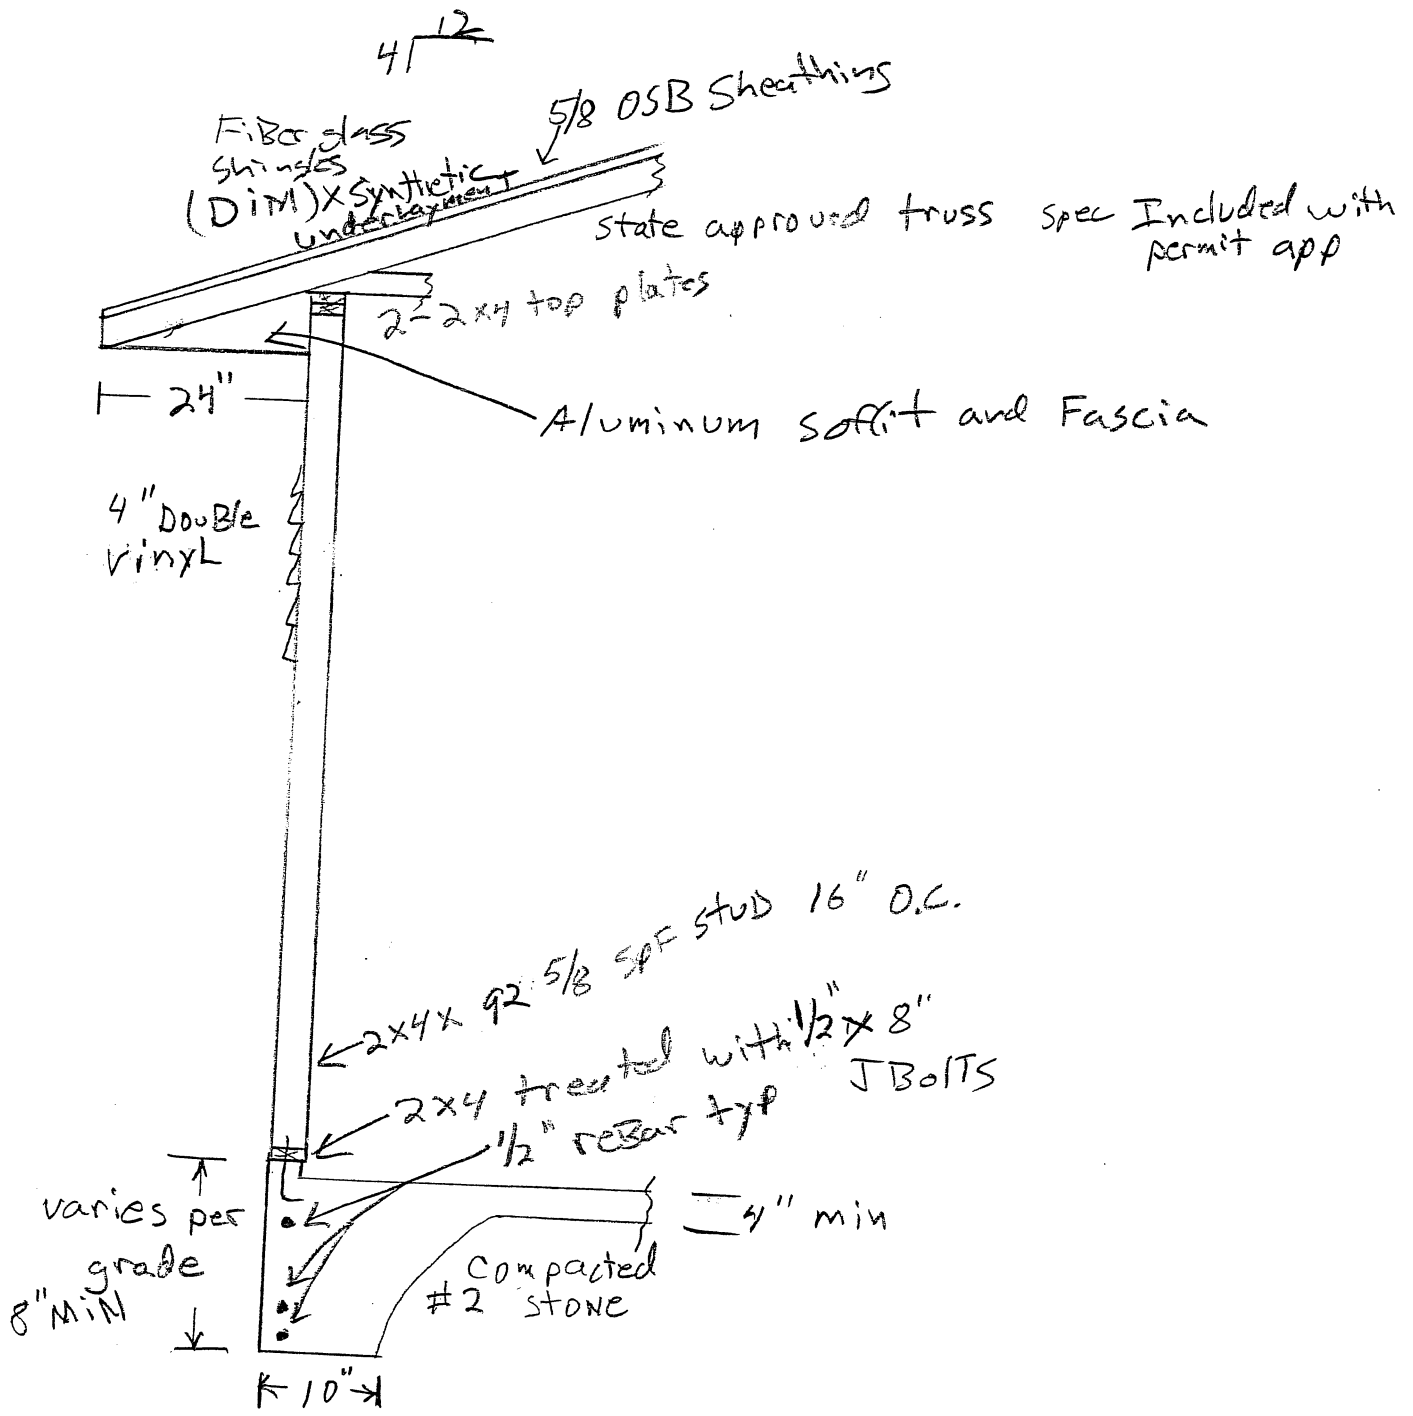 12
4
5/8 OSB Sheathing
FiBerglass
shingles
(DiM) X Synthetic
underlayment
state approved truss spec Included with
permit app
2-2x4 top plates
24"
Aluminum soffit and Fascia
4" DouBle
vinyL
2x4x 92 5/8 SPF STUD 16" O.C.
2x4 treated with 1/2" x 8"
J BolTS
1/2" reBar typ
varies per
grade
8" MiN
4" min
Compacted
#2 STONE
10"